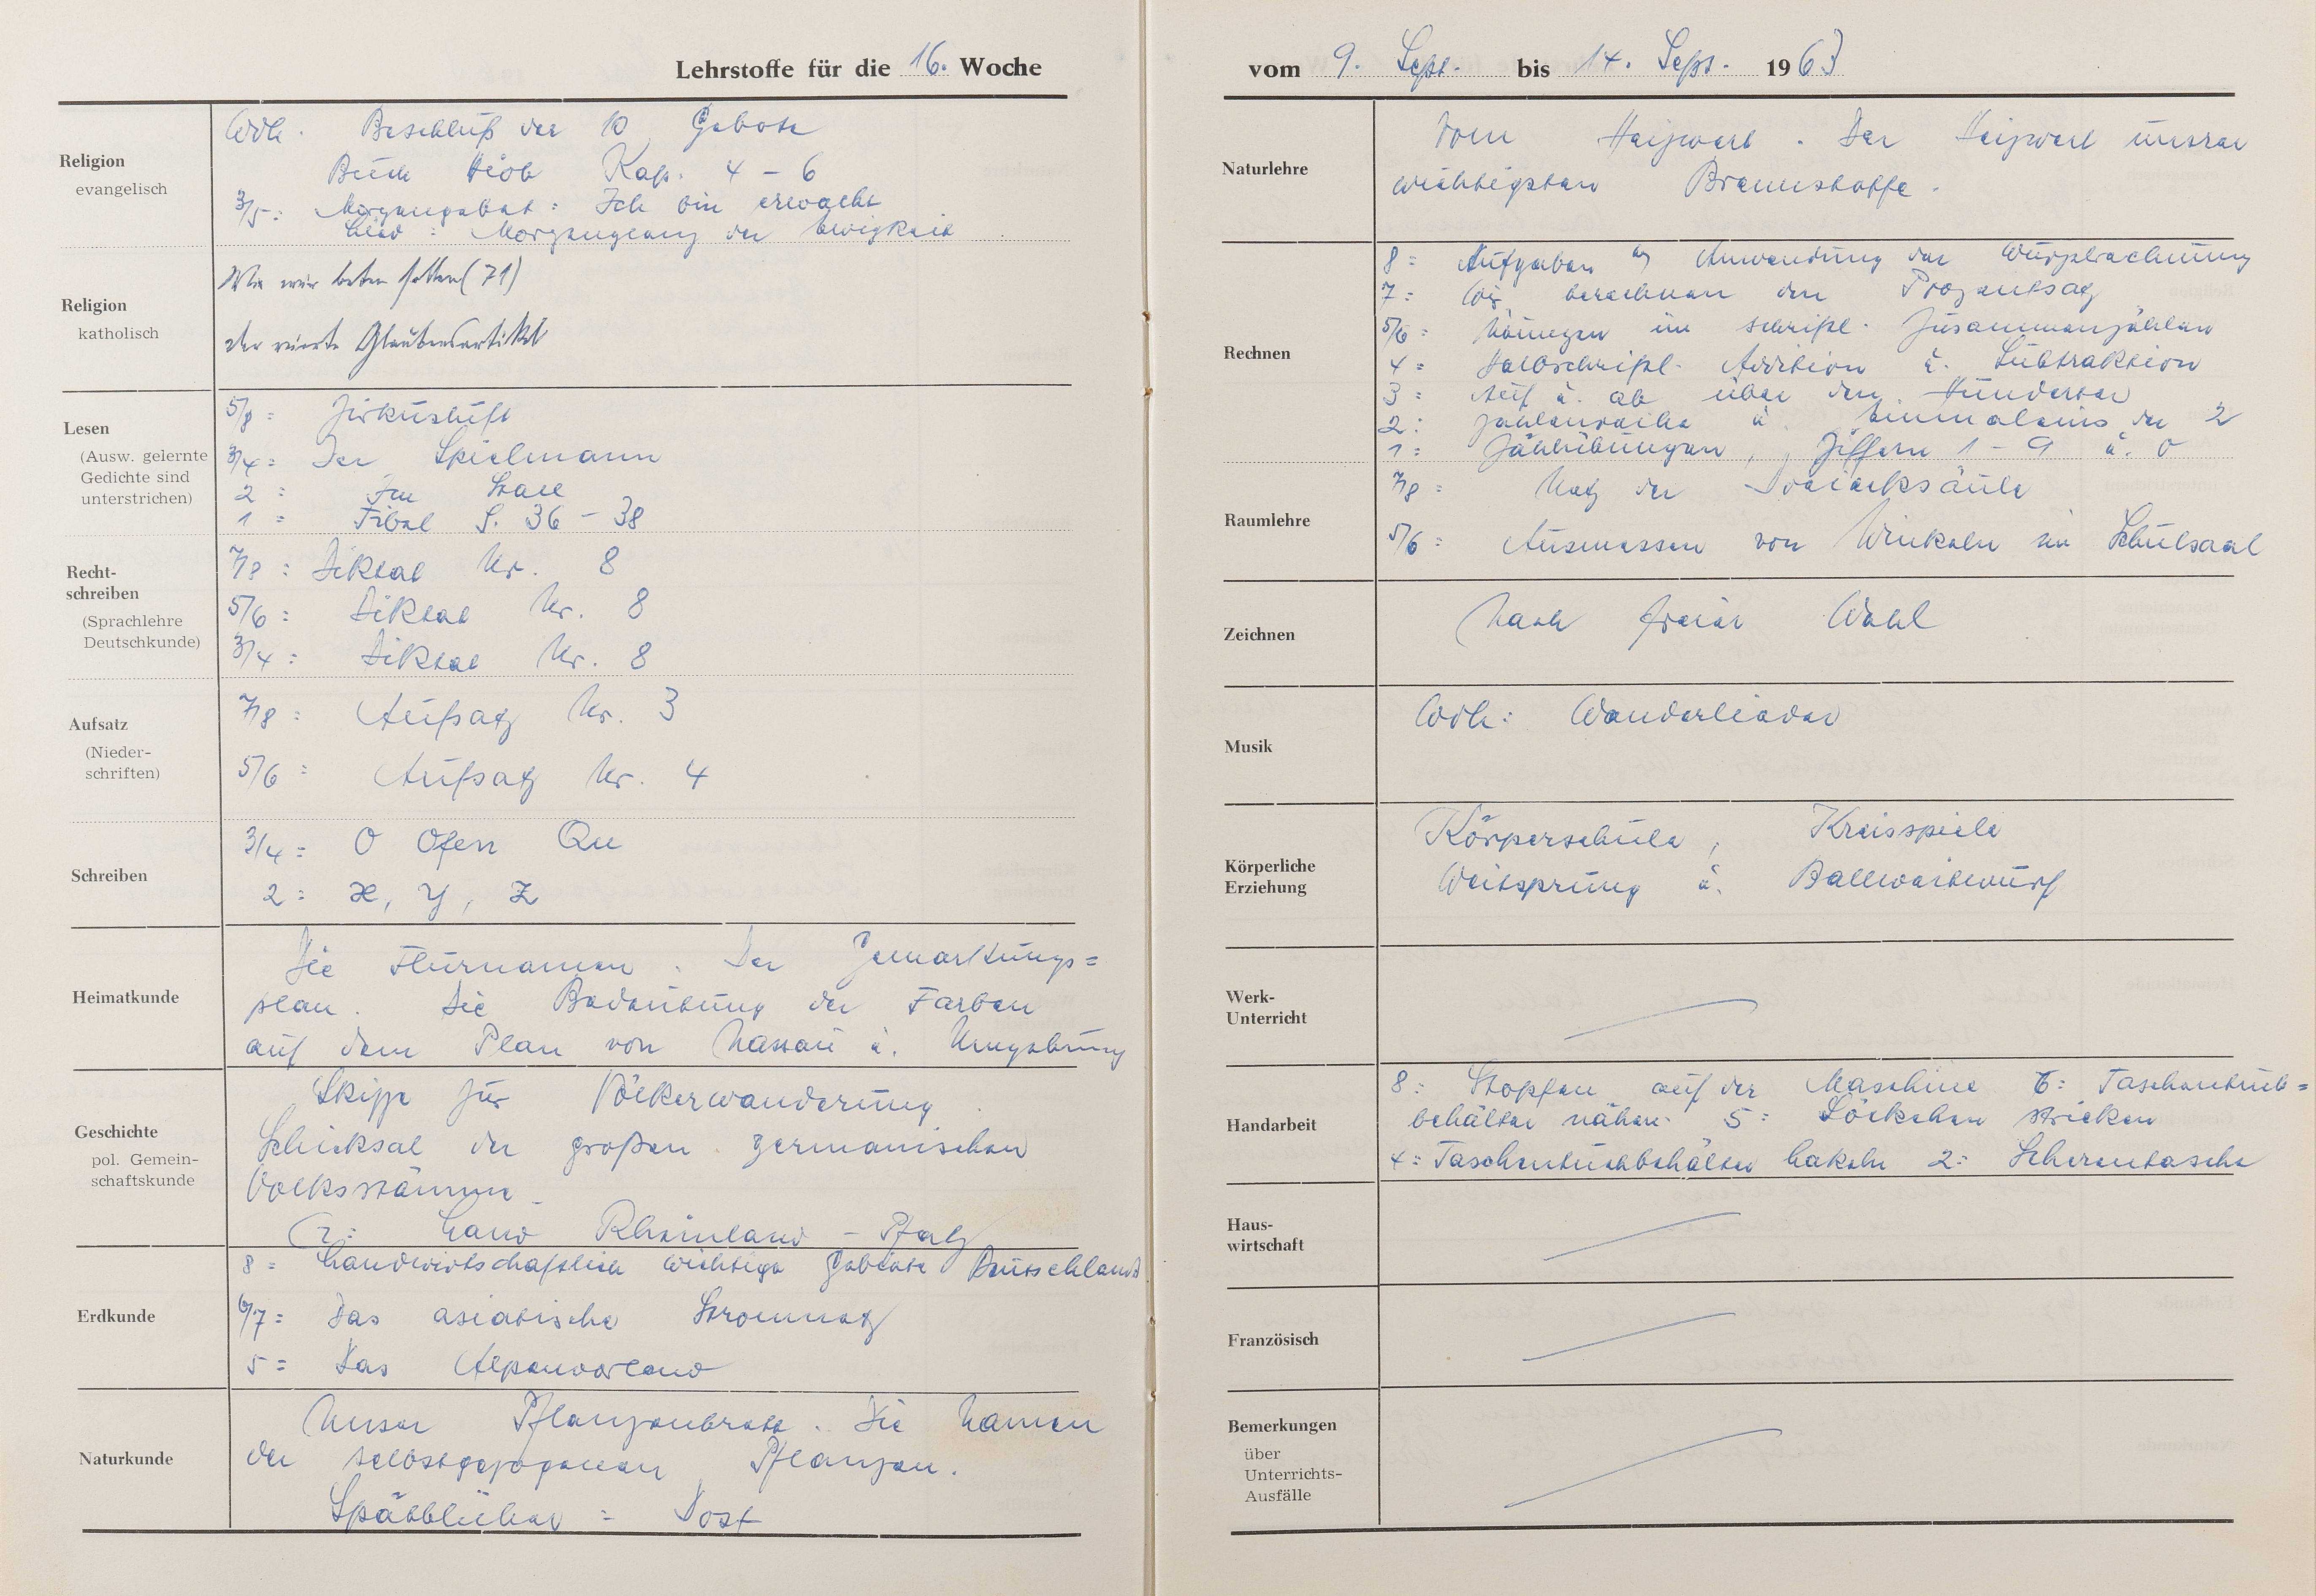 Lehrstoffe für die 16. Woche
Religion
evangelisch
Wdh. Beschluß der 10 Gebote
Buch Hiob Kap. 4 - 6
3/5: Morgengebet: Ich bin erwacht
Lied: Morgenglanz der Ewigkeit
Religion
katholisch
Wie wir beten sollen (71)
der vierte Glaubensartikel
Lesen
(Ausw. gelernte
Gedichte sind
unterstrichen)
5/8: Zirkusluft
3/4: Der Spielmann
2 : Im Stall
1 : Fibel S. 36 - 38
Recht-
schreiben
(Sprachlehre
Deutschkunde)
7/8 : Diktat Nr. 8
5/6 : Diktat Nr. 8
3/4 : Diktat Nr. 8
Aufsatz
(Nieder-
schriften)
7/8 : Aufsatz Nr. 3
5/6 : Aufsatz Nr. 4
Schreiben
3/4 : O Ofen Qu
2 : X, Y, Z
Heimatkunde
Die Flurnamen. Der Gemarkungs=
plan. Die Bedeutung der Farben
auf dem Plan von Nassau u. Umgebung
Geschichte
pol. Gemein-
schaftskunde
Skizze zur Völkerwanderung
Schicksal der großen germanischen
Volksstämme
Land Rheinland - Pfalz
Erdkunde
8 : Landwirtschaftlich wichtige Gebiete Deutschland
6/7 : Das asiatische Stromnetz
5 : Das Alpenvorland
Naturkunde
Unser Pflanzenbrett. Die Namen
der selbstgezogenen Pflanzen.
Spätblüher : Dost
vom 9. Sept. bis 14. Sept. 1963
Naturlehre
Vom Heizwert. Der Heizwert unsrer
wichtigsten Brennstoffe.
Rechnen
8 : Aufgaben Anwendung der Würfelrechnung
7 : Wir berechnen den Prozentsatz
5/6 : Übungen im schriftl. Zusammenzählen
4 : Halbschriftl. Addition u. Subtraktion
3 : Auf u. ab über den Hunderter
2 : Zahlenreihe u. Einmaleins der 2
1 : Zählübungen, Ziffern 1 - 9 u. 0
Raumlehre
7/8 : Netz der Dreiecksäule
5/6 : Ausmessen von Winkeln im Schulsaal
Zeichnen
Nach freier Wahl
Musik
Wdh: Wanderlieder
Körperliche
Erziehung
Körperschule, Kreisspiele
Weitsprung u. Ballweitwurf
Werk-
Unterricht
Handarbeit
8 : Stopfen auf der Maschine 6: Taschentuch=
behälter nähen. 5: Söckchen stricken
4: Taschentuchbehälter häkeln 2: Scherentasche
Haus-
wirtschaft
Französisch
Bemerkungen
über
Unterrichts-
Ausfälle